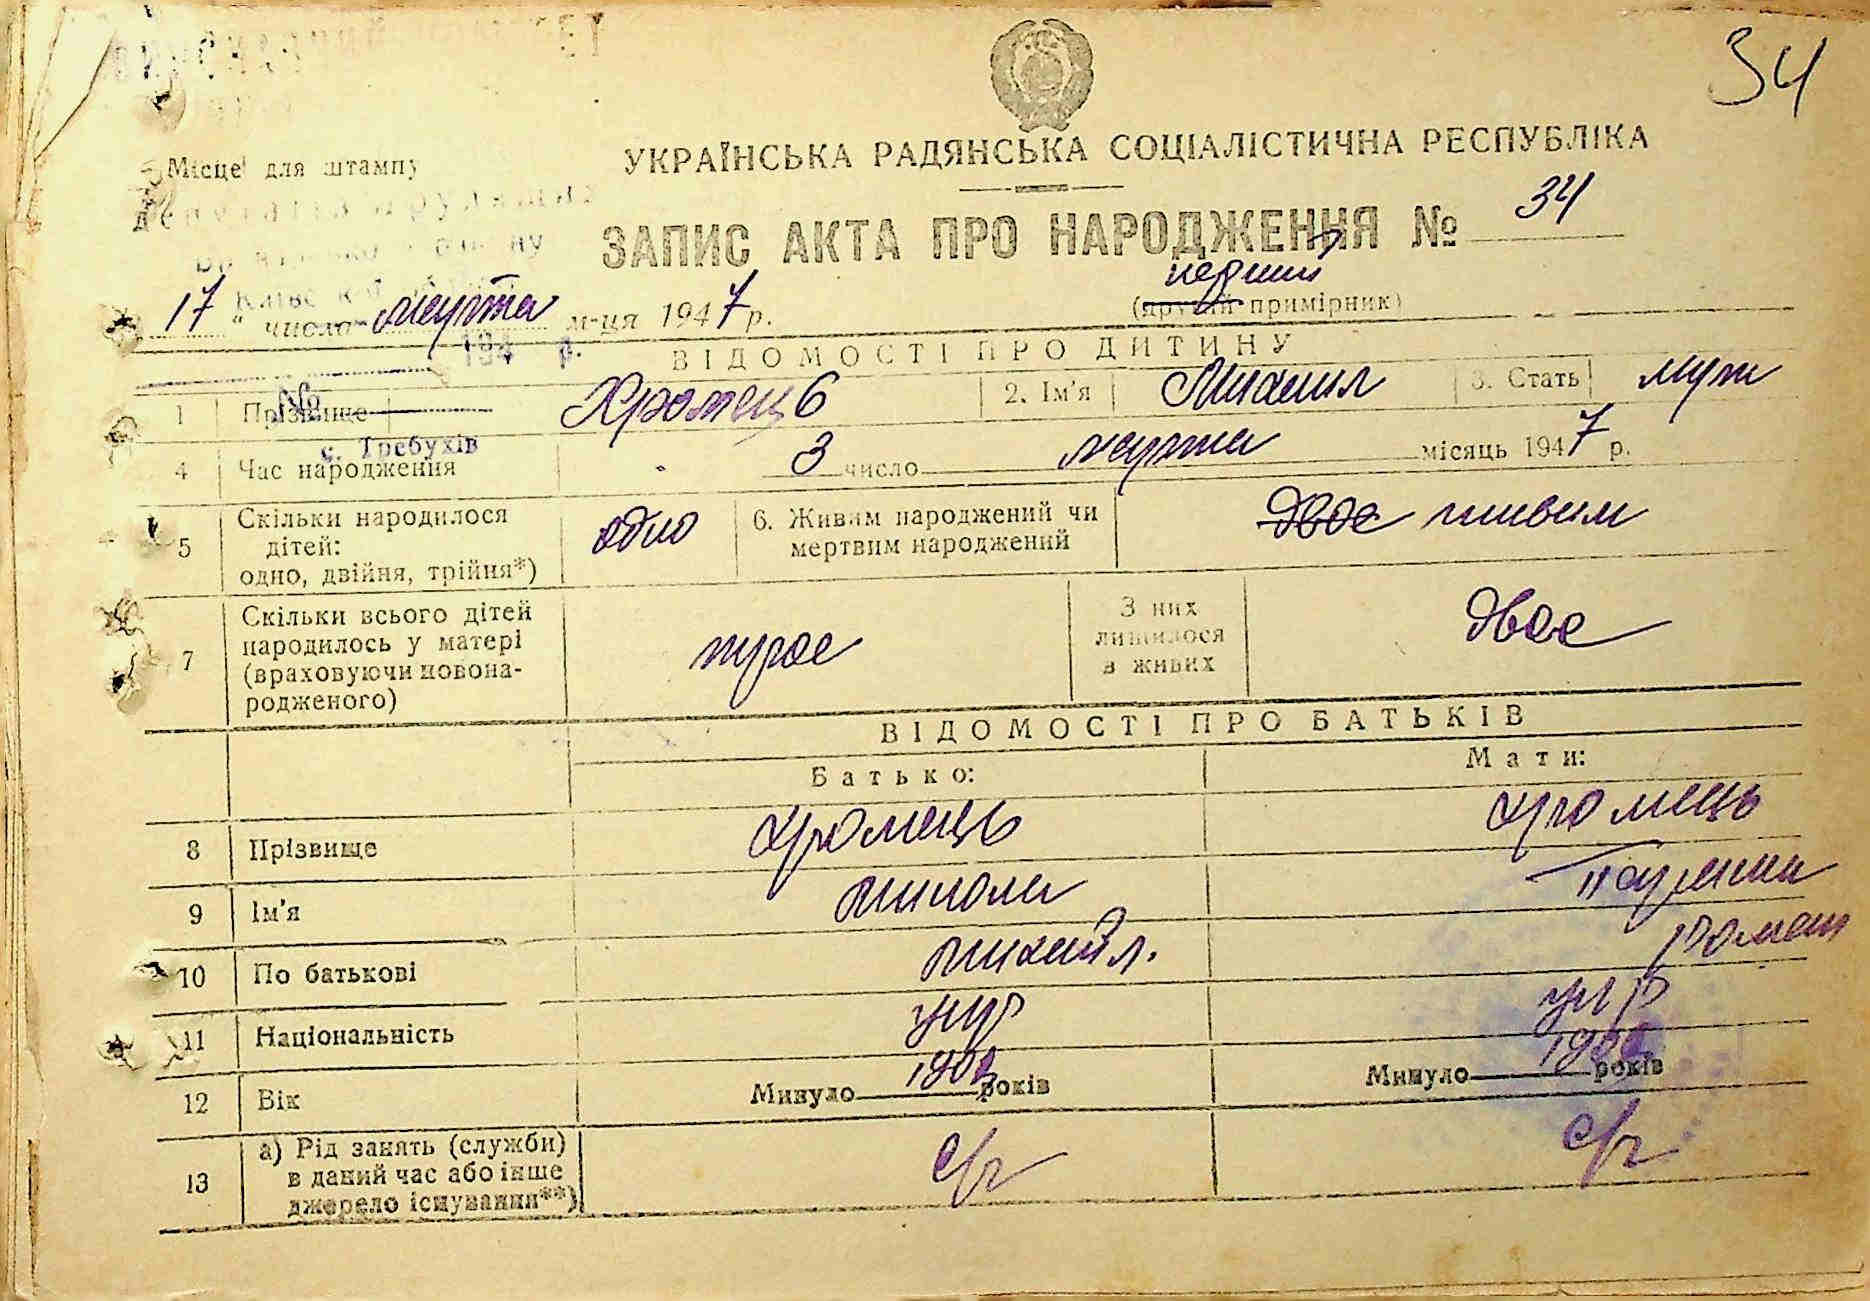 34
УКРАЇНСЬКА РАДЯНСЬКА СОЦІАЛІСТИЧНА РЕСПУБЛІКА
Місце для штампу
ЗАПИС АКТА ПРО НАРОДЖЕННЯ № 34
перший
(другий примірник)
17 " число марта м-ця 1947 р.
194 р.
ВІДОМОСТІ ПРО ДИТИНУ
№
1 Прізвище Хромець 2. Ім'я Михаил 3. Стать муж
с. Требухів
4 Час народження 3 число марта місяць 1947 р.
5 Скільки народилося дітей: одно, двійня, трійня*) одно 6. Живим народжений чи мертвим народжений двое живим
7 Скільки всього дітей народилось у матері (враховуючи новонародженого) троє З них лишилося в живих двоє
ВІДОМОСТІ ПРО БАТЬКІВ
Батько: Мати:
8 Прізвище Хромець Хромець
9 Ім'я Микола
10 По батькові Михайл. Роман
11 Національність укр укр
12 Вік Минуло років Минуло років
13 а) Рід занять (служби) в даний час або інше джерело існування**) с/г с/г